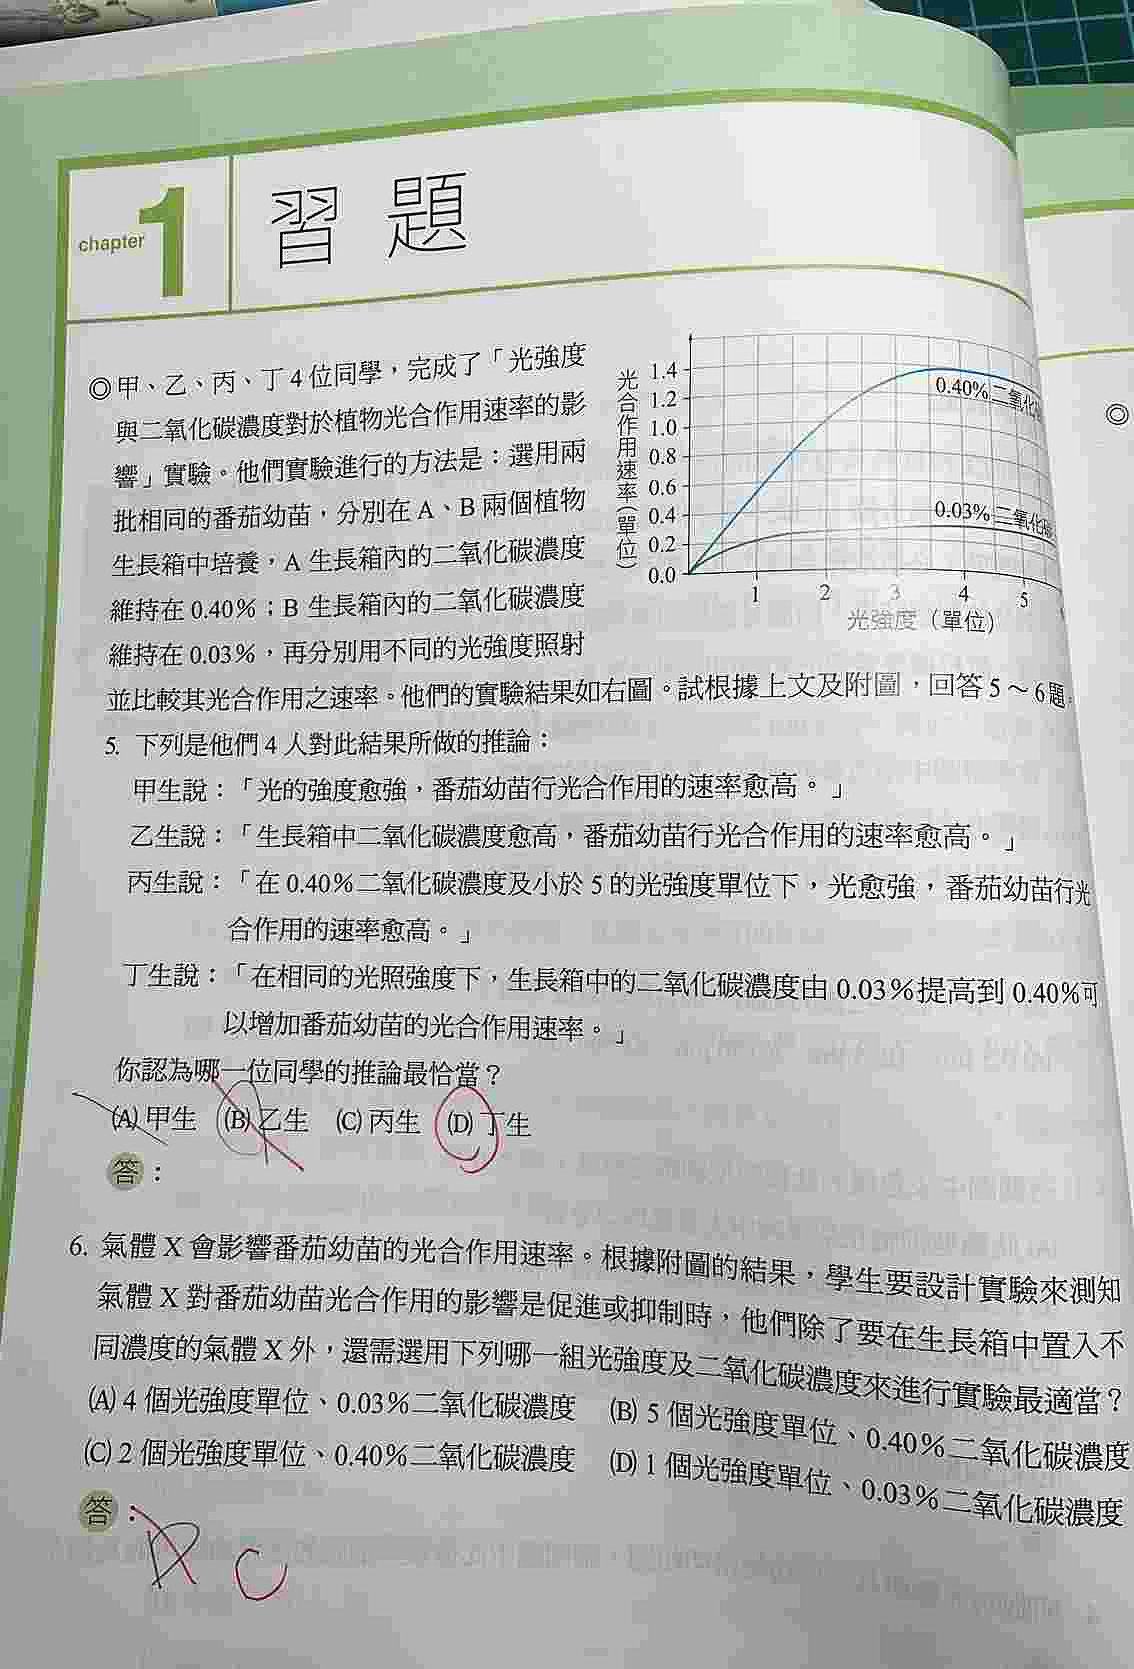 chapter 1 習題
◎甲、乙、丙、丁4位同學，完成了「光強度
與二氧化碳濃度對於植物光合作用速率的影
響」實驗。他們實驗進行的方法是：選用兩
批相同的番茄幼苗，分別在A、B兩個植物
生長箱中培養，A生長箱內的二氧化碳濃度
維持在0.40%；B生長箱內的二氧化碳濃度
維持在0.03%，再分別用不同的光強度照射
並比較其光合作用之速率。他們的實驗結果如右圖。試根據上文及附圖，回答5～6題。
光合作用速率（單位）
1.4
1.2
1.0
0.8
0.6
0.4
0.2
0.0
0.40%二氧化
0.03%二氧化碳
1 2 3 4 5
光強度（單位）
◎
5. 下列是他們4人對此結果所做的推論：
甲生說：「光的強度愈強，番茄幼苗行光合作用的速率愈高。」
乙生說：「生長箱中二氧化碳濃度愈高，番茄幼苗行光合作用的速率愈高。」
丙生說：「在0.40%二氧化碳濃度及小於5的光強度單位下，光愈強，番茄幼苗行光
合作用的速率愈高。」
丁生說：「在相同的光照強度下，生長箱中的二氧化碳濃度由0.03%提高到0.40%可
以增加番茄幼苗的光合作用速率。」
你認為哪一位同學的推論最恰當？
(A)甲生 (B)乙生 (C)丙生 (D)丁生
答：
6. 氣體X會影響番茄幼苗的光合作用速率。根據附圖的結果，學生要設計實驗來測知
氣體X對番茄幼苗光合作用的影響是促進或抑制時，他們除了要在生長箱中置入不
同濃度的氣體X外，還需選用下列哪一組光強度及二氧化碳濃度來進行實驗最適當？
(A) 4個光強度單位、0.03%二氧化碳濃度 (B) 5個光強度單位、0.40%二氧化碳濃度
(C) 2個光強度單位、0.40%二氧化碳濃度 (D) 1個光強度單位、0.03%二氧化碳濃度
答：
C